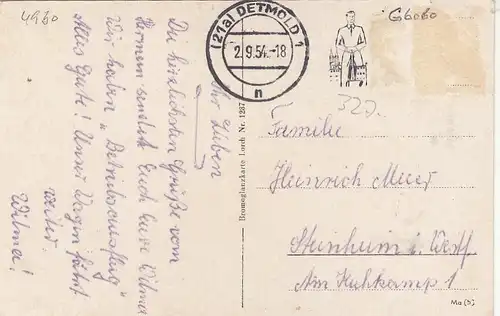 4960
(21a) DETMOLD 1
2.9.54.-18
n
G6060
320.
Ihr Lieben
Die herzlichsten Grüße vom
Hermann sendet Euch Eure Wilma
Wir haben "Betriebsausflug"
Alles Gute! Unser Wagen fährt
weiter.
Wilma!
Bromeglanzkarte Lorch Nr. 1237
Familie
Heinrich Meier
Steinheim i. Westf
Am Kuhkamp 1
Ma (S)